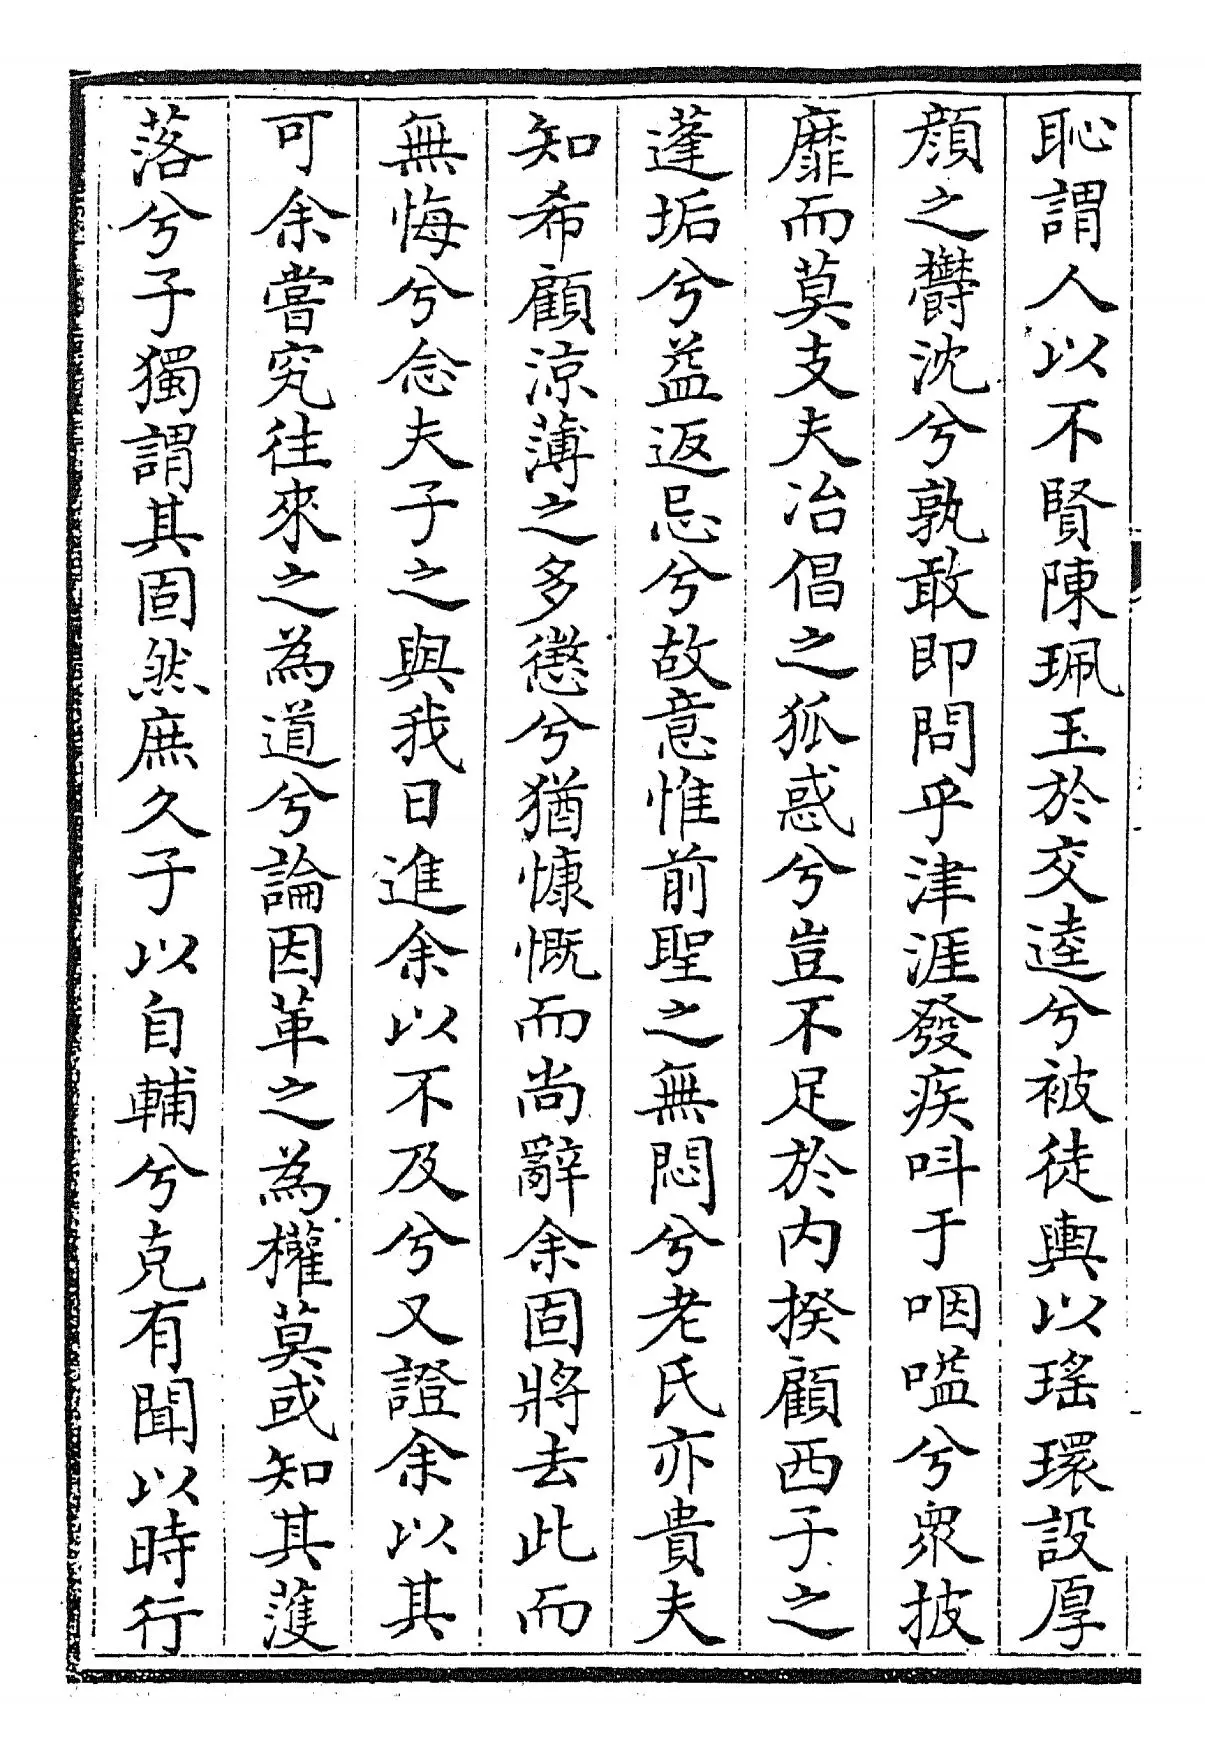 恥謂人以不賢陳珮玉於交逵兮被徒輿以瑤環設厚
顏之欝沈兮孰敢即問乎津涯發疾呌于咽嗌兮衆披
靡而莫支夫冶倡之狐惑兮豈不足於内揆顧西子之
蓬垢兮益返忌兮故意惟前聖之無悶兮老氏亦貴夫
知希顧涼薄之多懲兮猶慷慨而尚辭余固將去此而
無悔兮念夫子之與我日進余以不及兮又證余以其
可余嘗究往來之為道兮論因革之為權莫或知其濩
落兮子獨謂其固然庶久子以自輔兮克有聞以時行